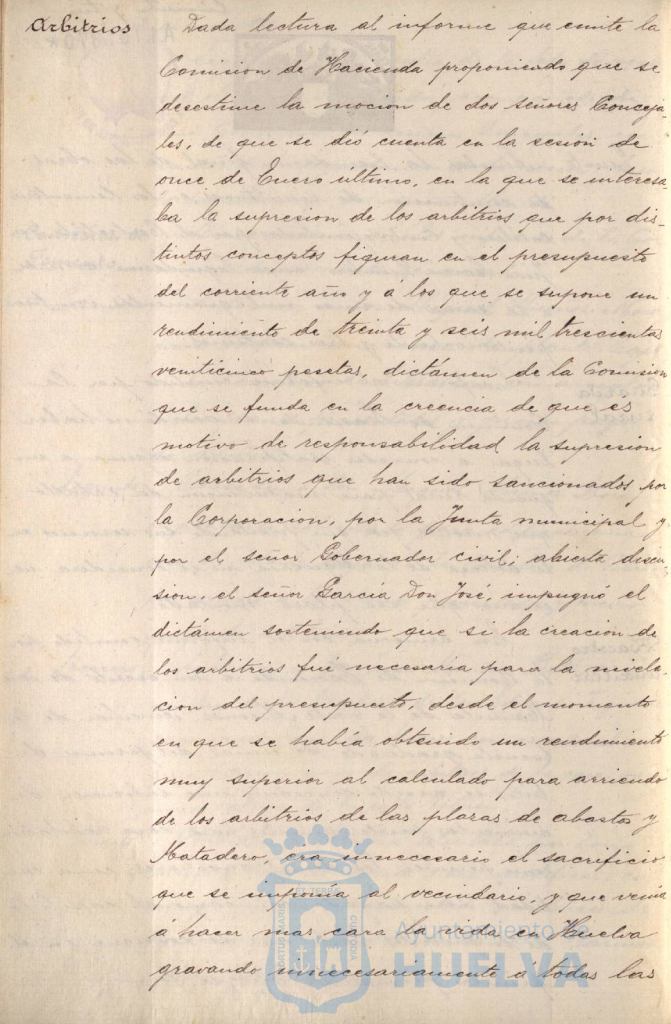 Arbitrios
Dada lectura al informe que emite la
Comision de Hacienda proponiendo que se
desestime la mocion de dos señores Conceja-
les, de que se dió cuenta en la sesión de
once de Enero último, en la que se interesa-
ba la supresion de los arbitrios que por dis-
tintos conceptos figuran en el presupuesto
del corriente año y á los que se supone un
rendimiento de treinta y seis mil trescientas
veinticinco pesetas, dictámen de la Comision
que se funda en la creencia de que es
motivo de responsabilidad la supresion
de arbitrios que han sido sancionados por
la Corporacion, por la Junta municipal y
por el señor Gobernador civil; abierta discu-
sion, el señor García Don José, impugnó el
dictámen sosteniendo que si la creacion de
los arbitrios fué necesaria para la nivela-
cion del presupuesto, desde el momento
en que se había obtenido un rendimiento
muy superior al calculado para arriendo
de los arbitrios de las plazas de abastos y
Matadero, era innecesario el sacrificio
que se imponia al vecindario, y que venia
á hacer mas cara la vida en Huelva
gravando innecesariamente á todas las
PORTUS MARIS ET TERRE CUSTODIA
Ayuntamiento de
HUELVA